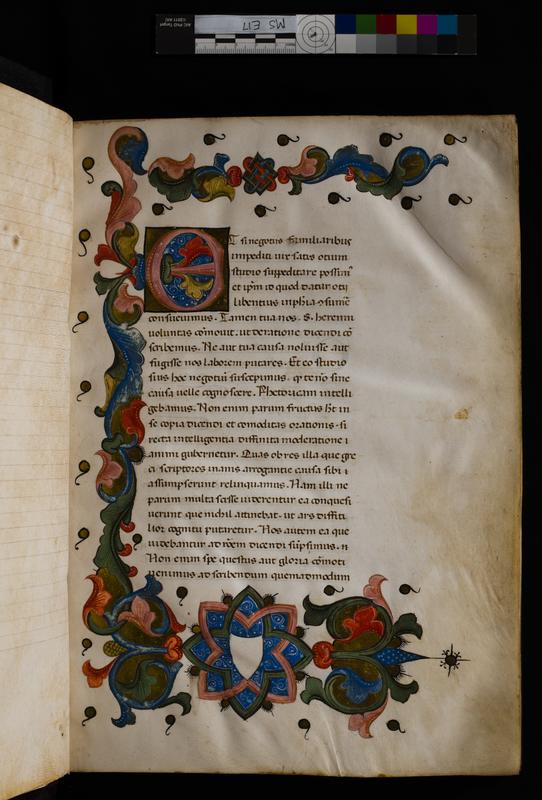 MS E17
Et si negotiis familiaribus
impediti uix satis otium
studio suppeditare possim̄
et ip̄m id quod datur otij
libentius in ph̄ia ↄsum̄e
consueuimus. Tamen tua nos. G. herenni
uoluntas cōmouit. ut de ratione dicendi cō
scribemus. Ne aut tua causa noluisse aut
fugisse nos laborem putares. Et eo studio
sius hoc negotiū suscepimus. q̨ te nō sine
causa uelle cognoscere. Rhetoricam intelli
gebamus. Non enim parum fructus h̄t in
se copia dicendi et comoditas orationis. si
recta intelligentia diffinita moderatione
animi gubernetur. Quas ob res illa que gre
ci scriptores inanis arrogantie causa sibi
assumpserunt relinquamus. Nam illi ne
parum multa scisse uiderentur ea conquesi
uerunt que nichil attinebat. ut ars diffici
lior cognitu putaretur. Nos autem ea que
uidebantur ad rōem dicendi sūpsimus. n
Non enim spe questus aut gloria cōmoti
uenimus ad scribendum quemadmodum